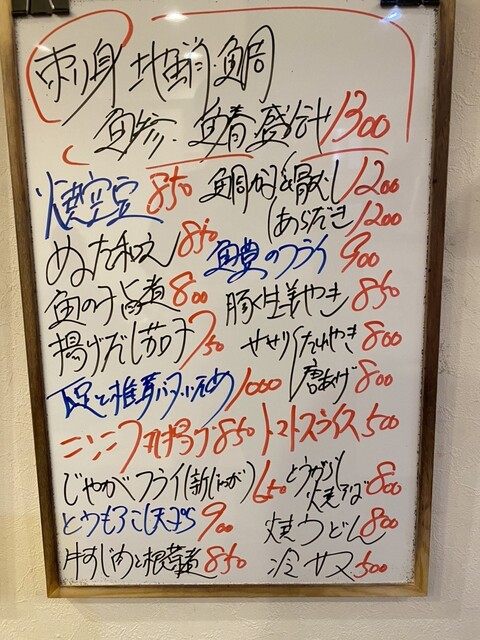 刺身 地蛸 鯛
鰺 鯖 盛合 1300
850
鯛かま 塩 骨むし 1200
あらだき 1200
ぬた和え 850
のフライ 900
魚の子旨煮 800
豚生姜やき 850
揚げだし茄子 750
ササリ たれやき 800
唐あげ 800
と椎茸バター炒め 1000
ニンニク丸揚げ 850
トマトスライス 500
じゃがフライ(新じゃが) 650
とうがらし焼そば 800
とうもろこし天ぷら 900
焼うどん 800
牛すじ と根菜煮 850
冷 500